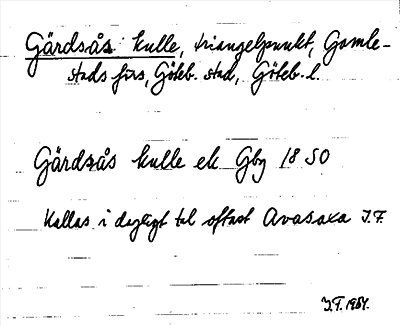 Gärdsås kulle, triangelpunkt, Gamle-
stads förs, Göteb. stad, Göteb. l.
Gärdsås kulle ek Gbg 1850
Kallas i dagligt tal oftast Avasaxa I.F.
I.F. 1951.